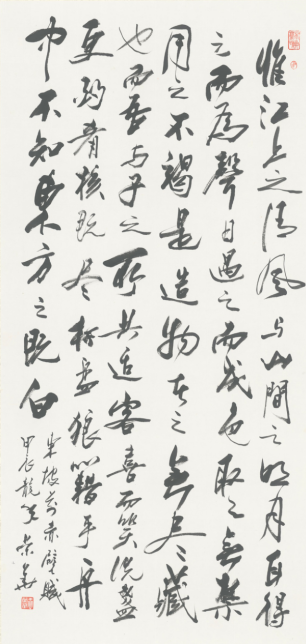 惟江上之清風与山間之明月耳得
之而為聲目遇之而成色取之無禁
用之不竭是造物者之無尽藏
也而吾与子之所共适客喜而笑洗盞
更酌肴核既尽杯盤狼籍乎舟
中不知東方之既白
東坡前赤壁賦
甲辰龍年